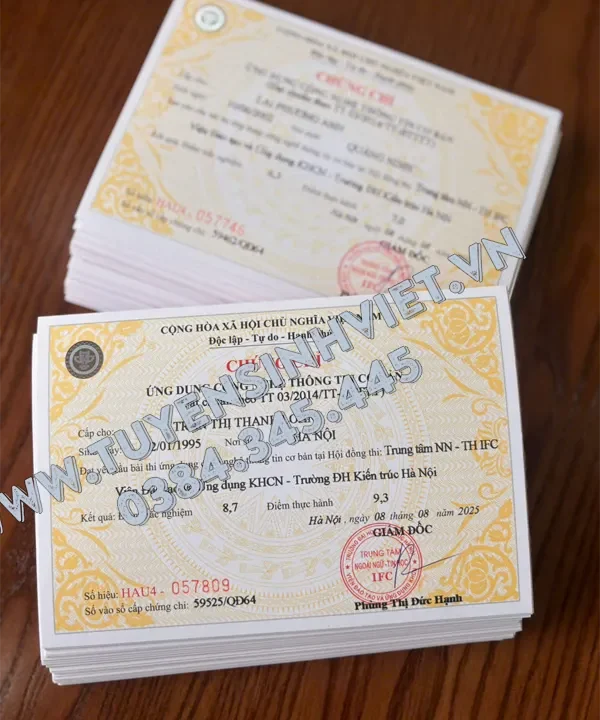 CHỨNG CHỈ
LẠI PHƯƠNG ANH
QUẢNG NINH
Viện Đào tạo và Ứng dụng KHCN - Trường ĐH Kiến trúc Hà Nội
Trung tâm NN - TH IFC
8,3
Điểm thực hành
7,0
Hà Nội, ngày 08 tháng 08
HAU4 - 057746
59462/QĐ64
GIÁM ĐỐC
WWW.TUYENSINHVIET.VN
0384.345.445
CỘNG HÒA XÃ HỘI CHỦ NGHĨA VIỆT NAM
Độc lập - Tự do - Hạnh phúc
CHỨNG CHỈ
ỨNG DỤNG CÔNG NGHỆ THÔNG TIN CƠ BẢN
TT 03/2014/TT-
Cấp cho:
THỊ THANH
Sinh
/01/1995
Nơi
HÀ NỘI
Đạt yêu cầu bài thi ứng dụng công nghệ thông tin cơ bản tại Hội đồng thi: Trung tâm NN - TH IFC
Viện Đào tạo và Ứng dụng KHCN - Trường ĐH Kiến trúc Hà Nội
Kết quả: Điểm trắc nghiệm 8,7 Điểm thực hành 9,3
Hà Nội, ngày 08 tháng 08 năm 2025
GIÁM ĐỐC
TRUNG TÂM
NGOẠI NGỮ-TIN HỌC
IFC
Số hiệu: HAU4 - 057809
Số vào sổ cấp chứng chỉ: 59525/QĐ64
Phùng Thị Đức Hạnh